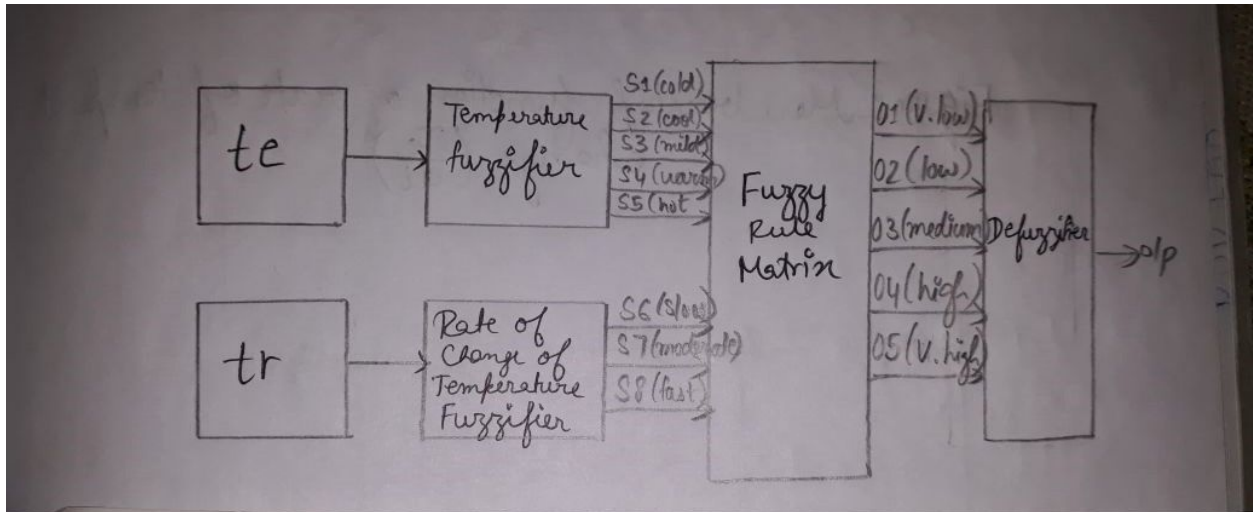 te
Temperature
fuzzifier
S1 (cold)
S2 (cool)
S3 (mild)
S4 (warm)
S5 (hot
tr
Rate of
Change of
Temperature
Fuzzifier
S6 (slow)
S7 (moderate)
S8 (fast)
Fuzzy
Rule
Matrix
O1 (V.low)
O2 (low)
O3 (medium)
O4 (high)
O5 (V.high)
Defuzzifier
o/p